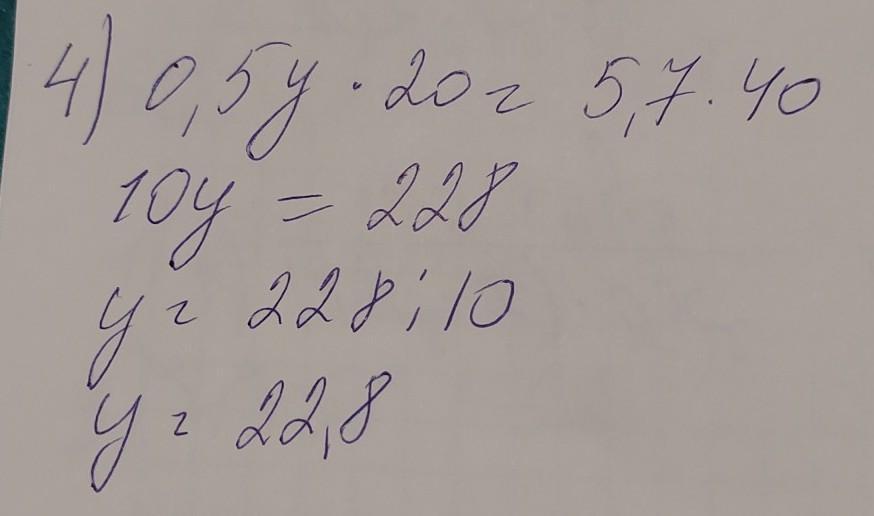 4) 0,5y · 20 = 5,7 · 40
10y = 228
y = 228 : 10
y = 22,8